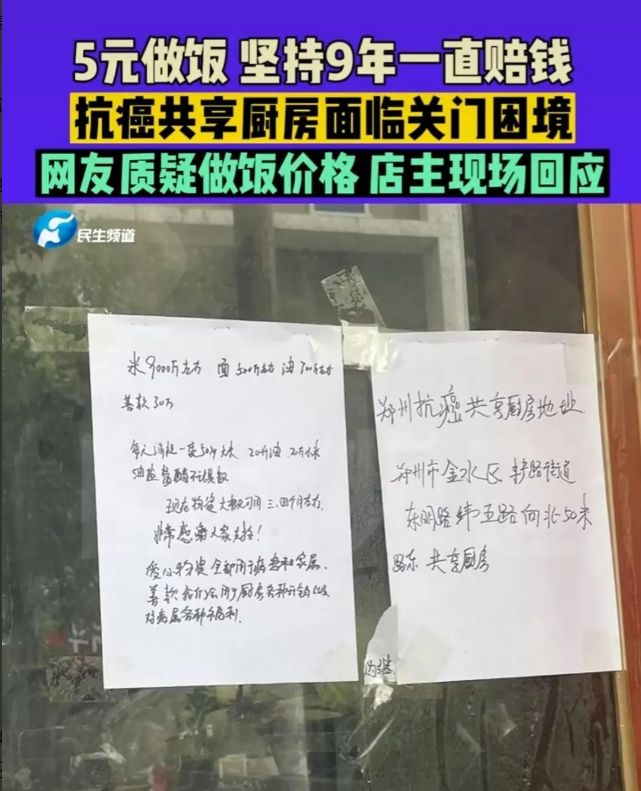 5元做饭 坚持9年一直赔钱
抗癌共享厨房面临关门困境
网友质疑做饭价格 店主现场回应
民生频道
米9000斤左右 面500斤左右 油700斤左右
善款30万
每天消耗一袋50斤大米 20斤油
现在物资大概可用三、四个月左右
非常感谢大家支持!
爱心物资全部用于病患和家属.
善款 用于厨房各种开销以及
郑州抗癌共享厨房地址
郑州市金水区 路街道
东明路纬五路向北50米
路东 共享厨房